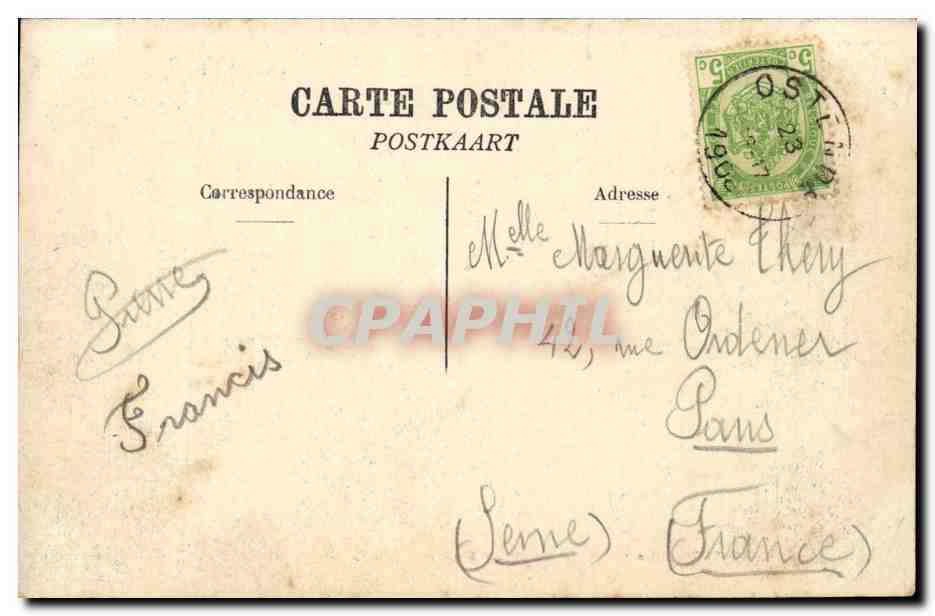 CARTE POSTALE
POSTKAART
Correspondance
Adresse
5 c 5 c
OSTENDE
23
17
190
Pierre
Francis
Melle Marguerite Théry
42, rue Ordener
Paris
(Seine) (France)
CPAPHIL